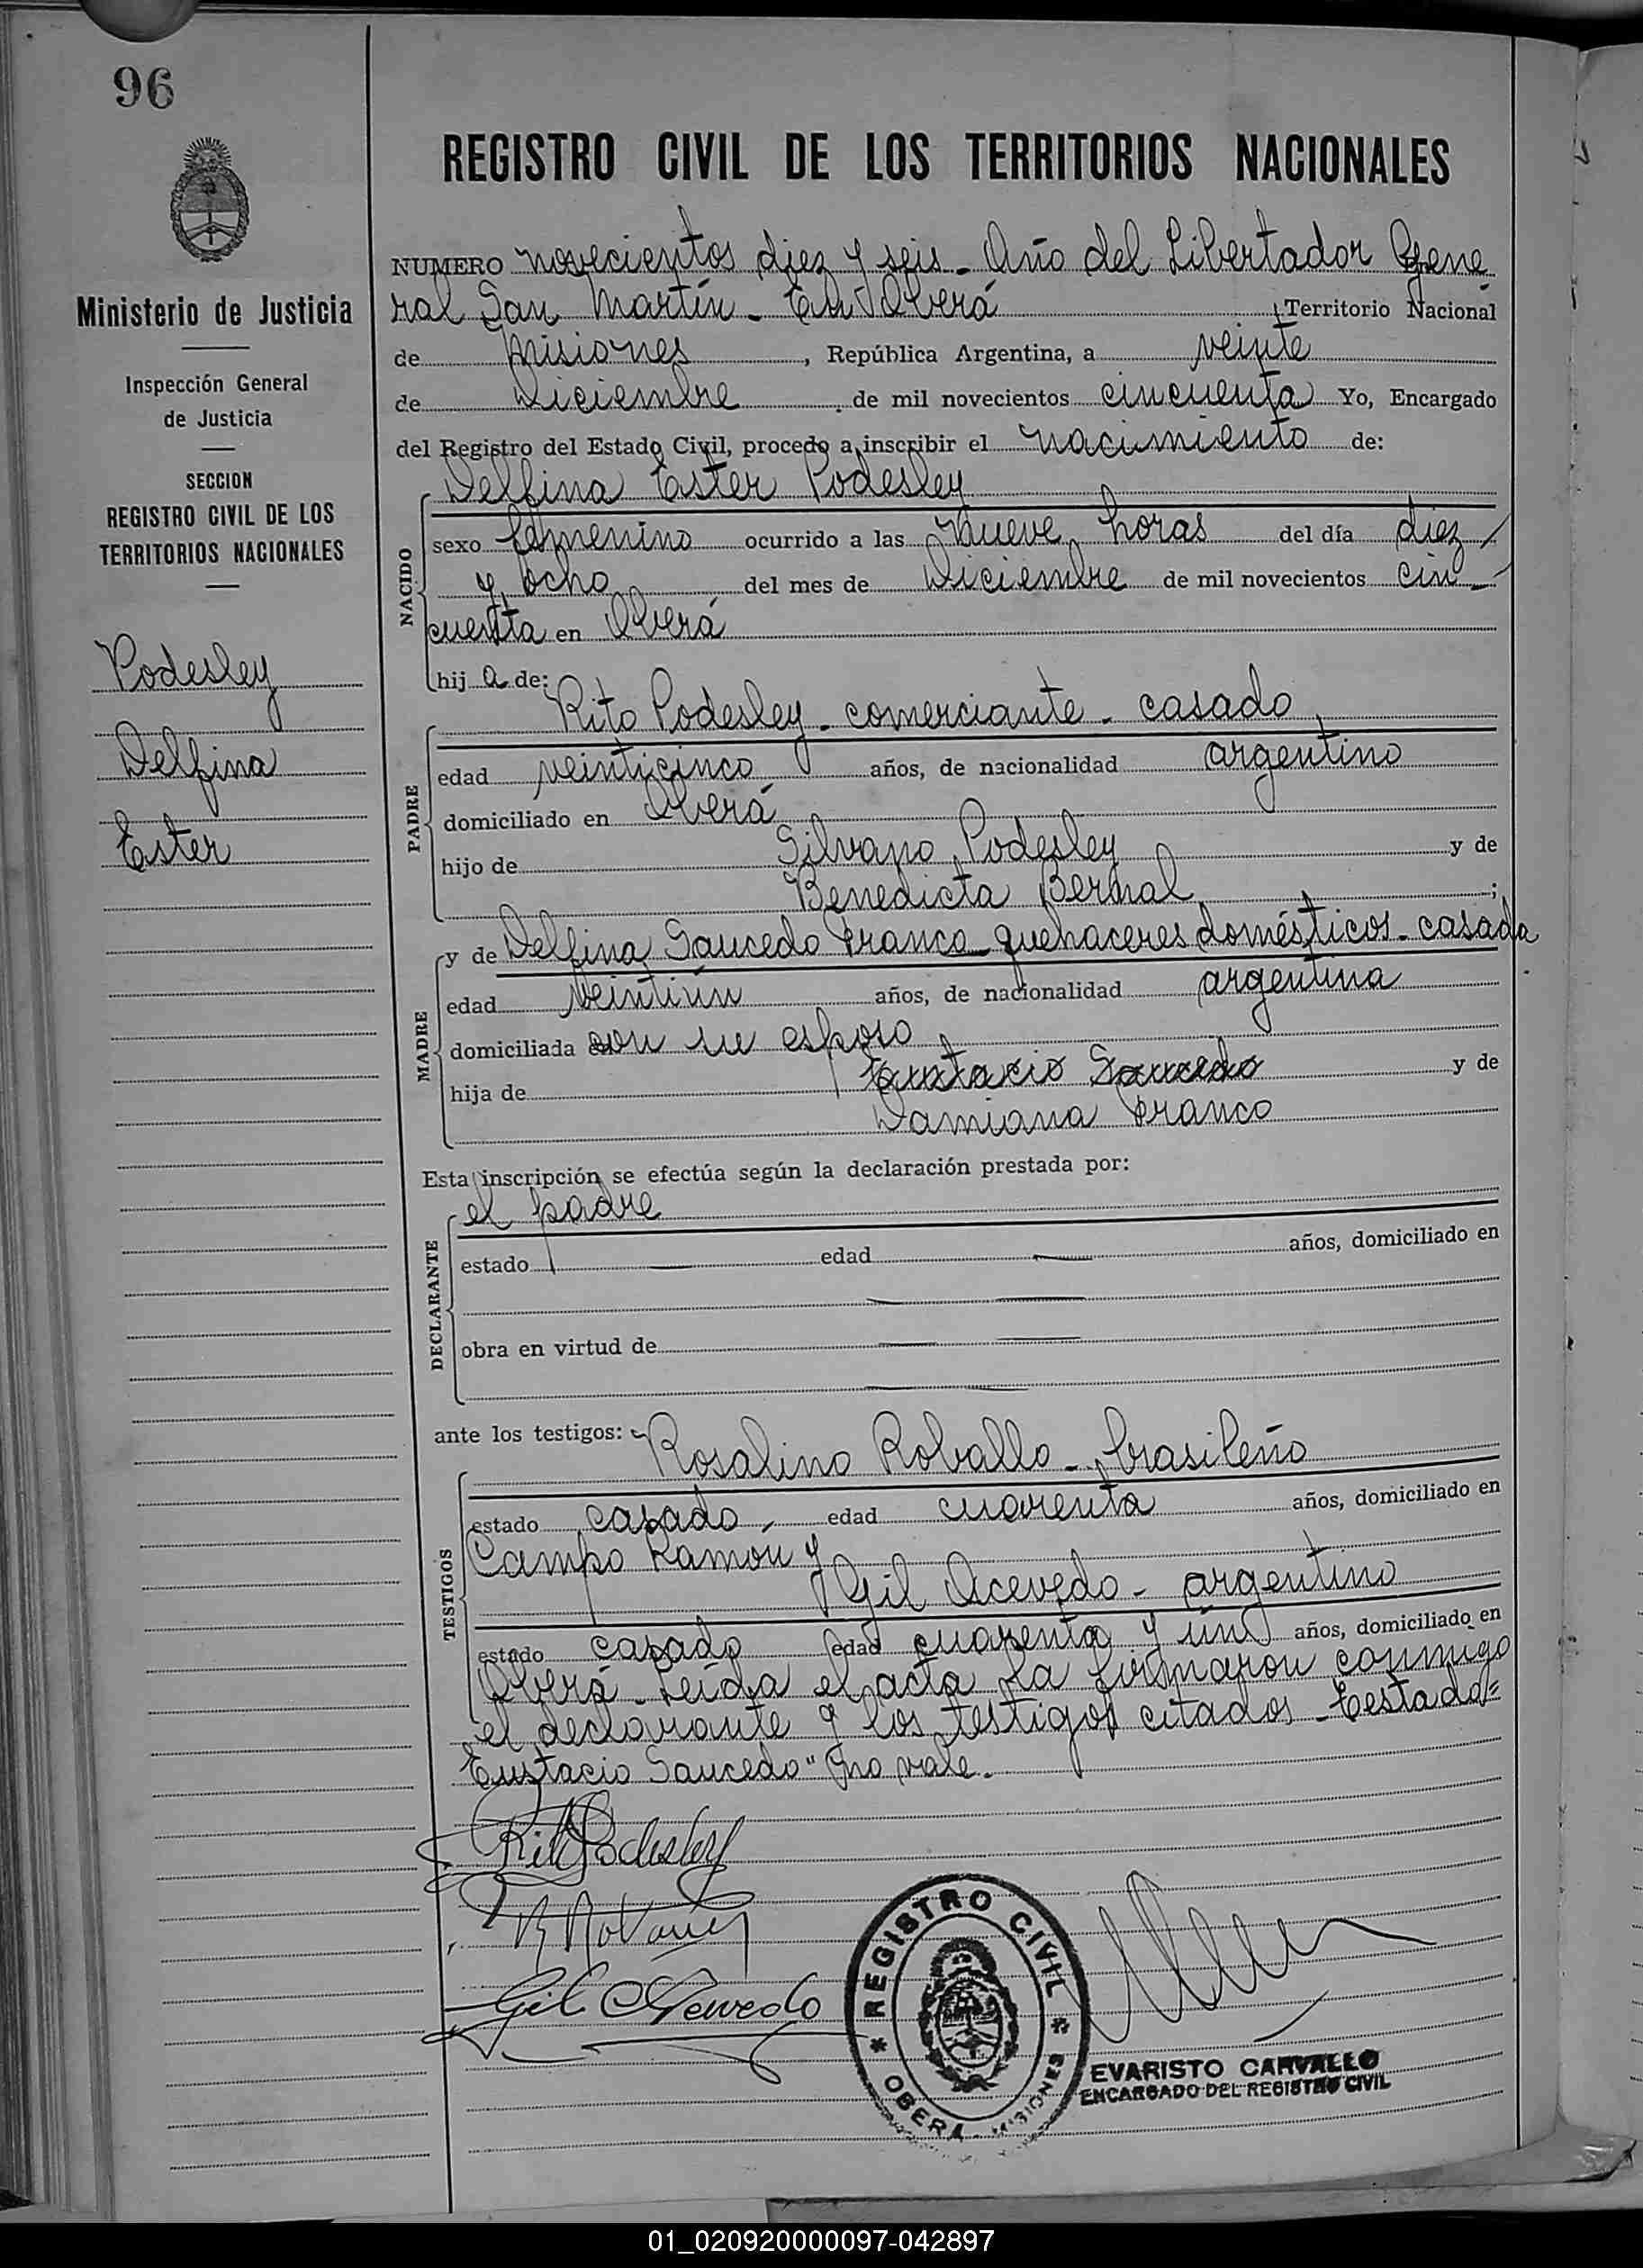 96
Ministerio de Justicia
Inspección General
de Justicia
SECCION
REGISTRO CIVIL DE LOS
TERRITORIOS NACIONALES
Podesley
Delfina
Ester
REGISTRO CIVIL DE LOS TERRITORIOS NACIONALES
NUMERO novecientos diez y seis - Año del Libertador Gene
ral San Martín - En Oberá Territorio Nacional
de Misiones, República Argentina, a veinte
de Diciembre de mil novecientos cincuenta Yo, Encargado
del Registro del Estado Civil, procedo a inscribir el nacimiento de:
Delfina Ester Podesley
NACIDO
sexo femenino ocurrido a las nueve horas del día diez
y ocho del mes de Diciembre de mil novecientos cin-
cuenta en Oberá
hij a de:
Rito Podesley - comerciante - casado
PADRE
edad veinticinco años, de nacionalidad argentino
domiciliado en Oberá
hijo de Silvano Podesley y de
Benedicta Bernal;
y de Delfina Saucedo Franco - quehaceres domésticos - casada
MADRE
edad veintiún años, de nacionalidad argentina
domiciliada con su esposo
hija de Eustacio Saucedo y de
Damiana Franco
Esta inscripción se efectúa según la declaración prestada por:
el padre
DECLARANTE
estado edad años, domiciliado en
obra en virtud de
ante los testigos:
Rosalino Roballo - brasileño
TESTIGOS
estado casado, edad cuarenta años, domiciliado en
Campo Ramon y
Gil Acevedo - argentino
estado casado edad cuarenta y un años, domiciliado en
Oberá - Leída el acta la firmaron conmigo
el declarante y los testigos citados - Testado=
Eustacio Saucedo" no vale.
Rito Podesley
Gil Acevedo
REGISTRO CIVIL
OBERA - MISIONES
EVARISTO CARVALLO
ENCARGADO DEL REGISTRO CIVIL
01_020920000097-042897